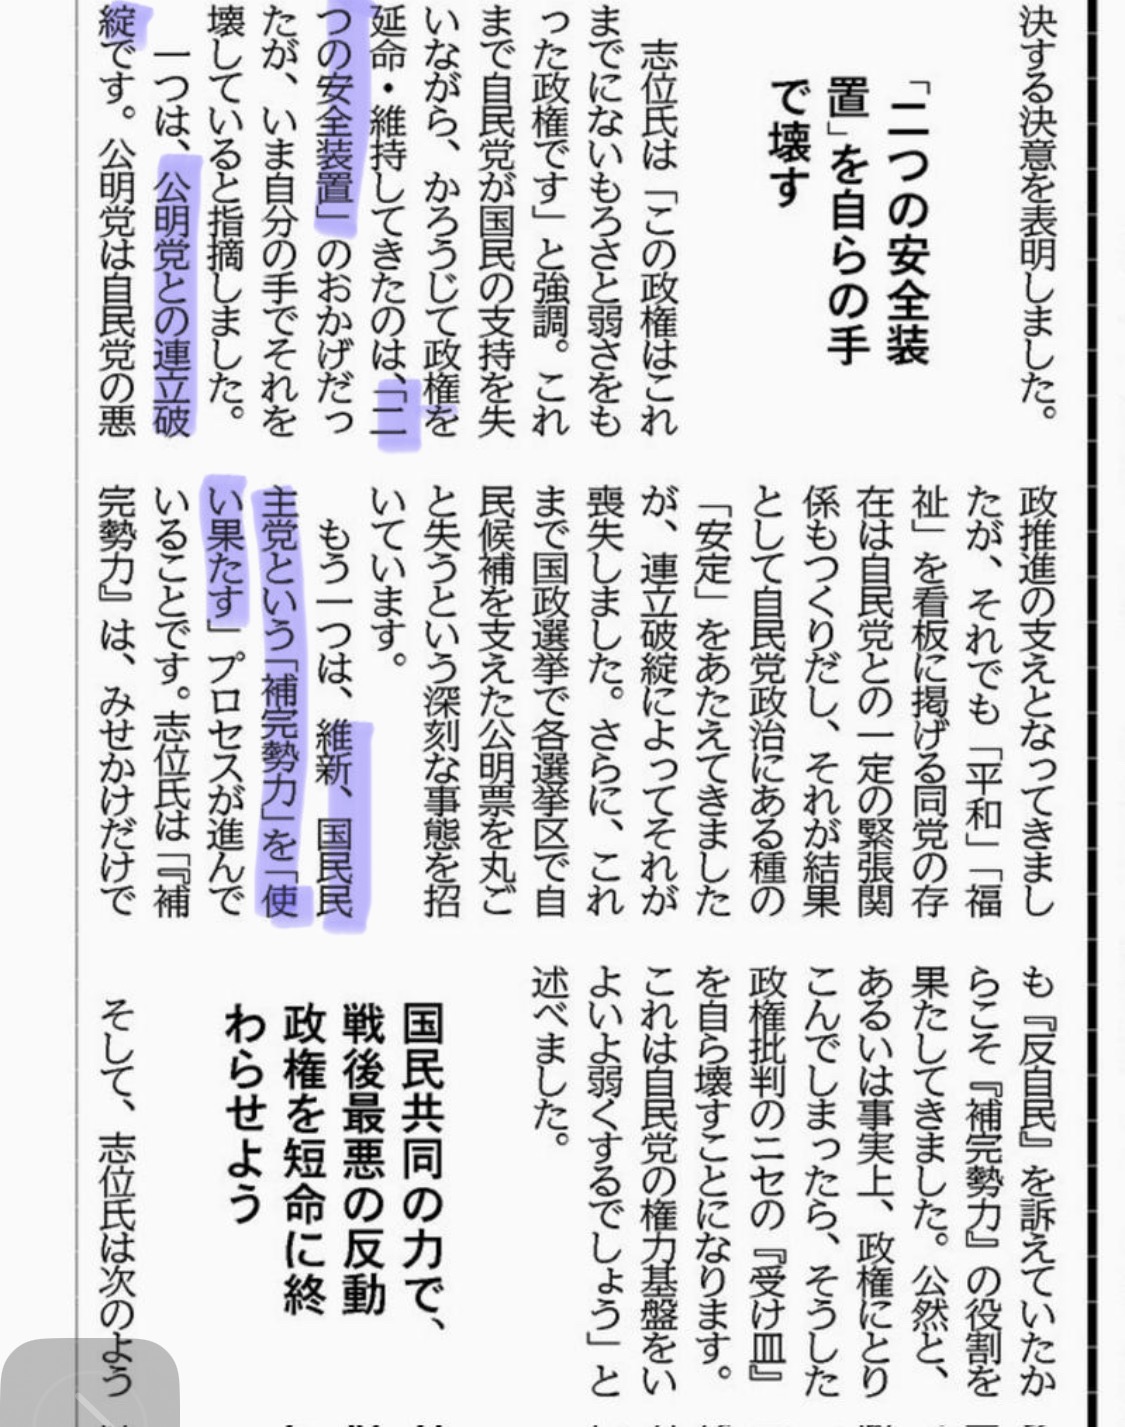 決する決意を表明しました。
「二つの安全装
置」を自らの手
で壊す
志位氏は「この政権はこれ
までにないもろさと弱さをも
った政権です」と強調。これ
まで自民党が国民の支持を失
いながら、かろうじて政権を
延命・維持してきたのは、「二
つの安全装置」のおかげだっ
たが、いま自分の手でそれを
壊していると指摘しました。
一つは、公明党との連立破
綻です。公明党は自民党の悪
政推進の支えとなってきまし
たが、それでも「平和」「福
祉」を看板に掲げる同党の存
在は自民党との一定の緊張関
係もつくりだし、それが結果
として自民党政治にある種の
「安定」をあたえてきました
が、連立破綻によってそれが
喪失しました。さらに、これ
まで国政選挙で各選挙区で自
民候補を支えた公明票を丸ご
と失うという深刻な事態を招
いています。
もう一つは、維新、国民民
主党という「補完勢力」を「使
い果たす」プロセスが進んで
いることです。志位氏は「『補
完勢力』は、みせかけだけで
も『反自民』を訴えていたか
らこそ『補完勢力』の役割を
果たしてきました。公然と、
あるいは事実上、政権にとり
こんでしまったら、そうした
政権批判のニセの『受け皿』
を自ら壊すことになります。
これは自民党の権力基盤をい
よいよ弱くするでしょう」と
述べました。
国民共同の力で、
戦後最悪の反動
政権を短命に終
わらせよう
そして、志位氏は次のよう